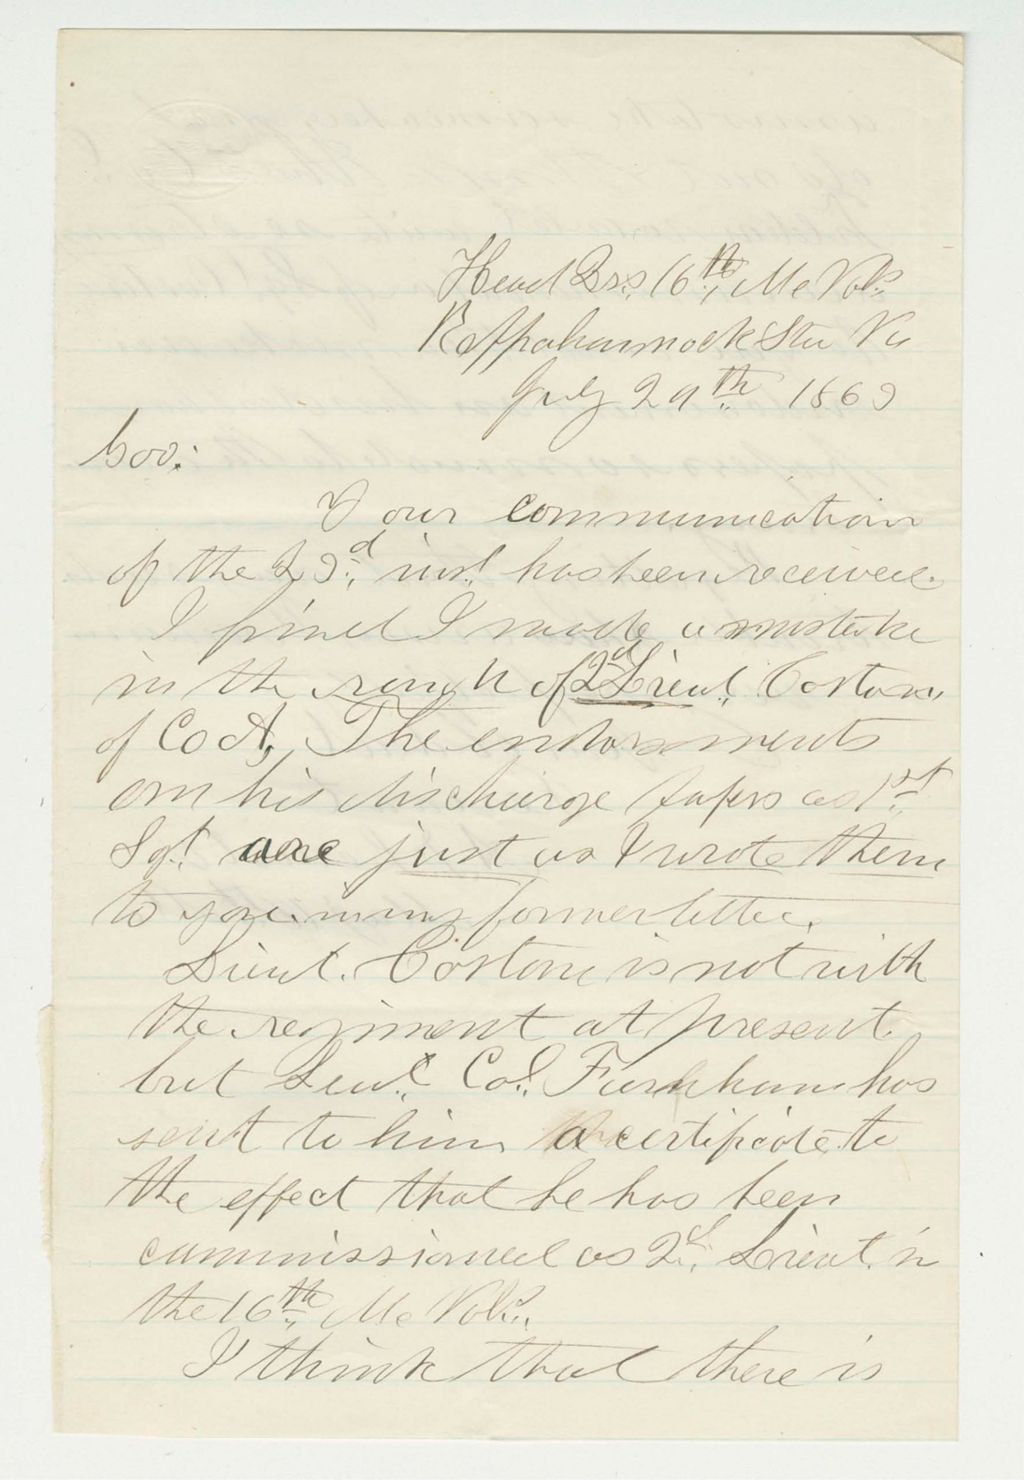 Head Qrs. 16th, Me Vols.
Rappahannock Sta Va
July 29th 1863
Gov:
Your communication
of the 23d, inst. has been received.
I find I made a mistake
in the rank of 2d Lieut. Coston,
of Co A, The endorsements
on his discharge papers as 1st
Sgt are just as I wrote them
to you in my former letter.
Lieut. Coston is not with
the regiment at present.
but Lieut. Col. Farnham has
sent to him a certificate to
the effect that he has been
commissioned as 2d, Lieut. in
the 16th, Me Vols.,
I think that there is